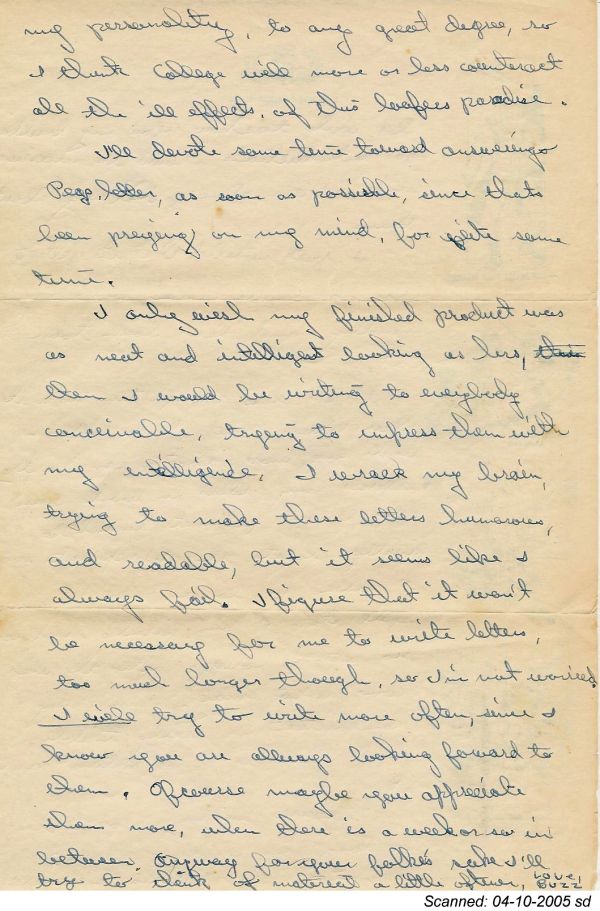 my personality, to any great degree, so
I think College will more or less counteract
all the ill effects, of this loafers paradise.
I'll devote some time toward answering
Pegs, letter, as soon as possible, since thats
been preying on my mind, for quite some
time.
I only wish my finished product was
as neat and intelligent looking as hers,
then I would be writing to everybody
conceivable, trying to impress them with
my intelligence. I wrack my brain,
trying to make these letters humorous,
and readable, but it seems like I
always fail. I figure that it won't
be necessary for me to write letters,
too much longer though, so I'm not worried.
I will try to write more often, since I
know you are always looking forward to
them. Ofcourse maybe you appreciate
them more, when there is a week or so in
between. Anyway for your folks sake I'll
try to think of material a little oftener, LOVE,
BUZZ
Scanned: 04-10-2005 sd